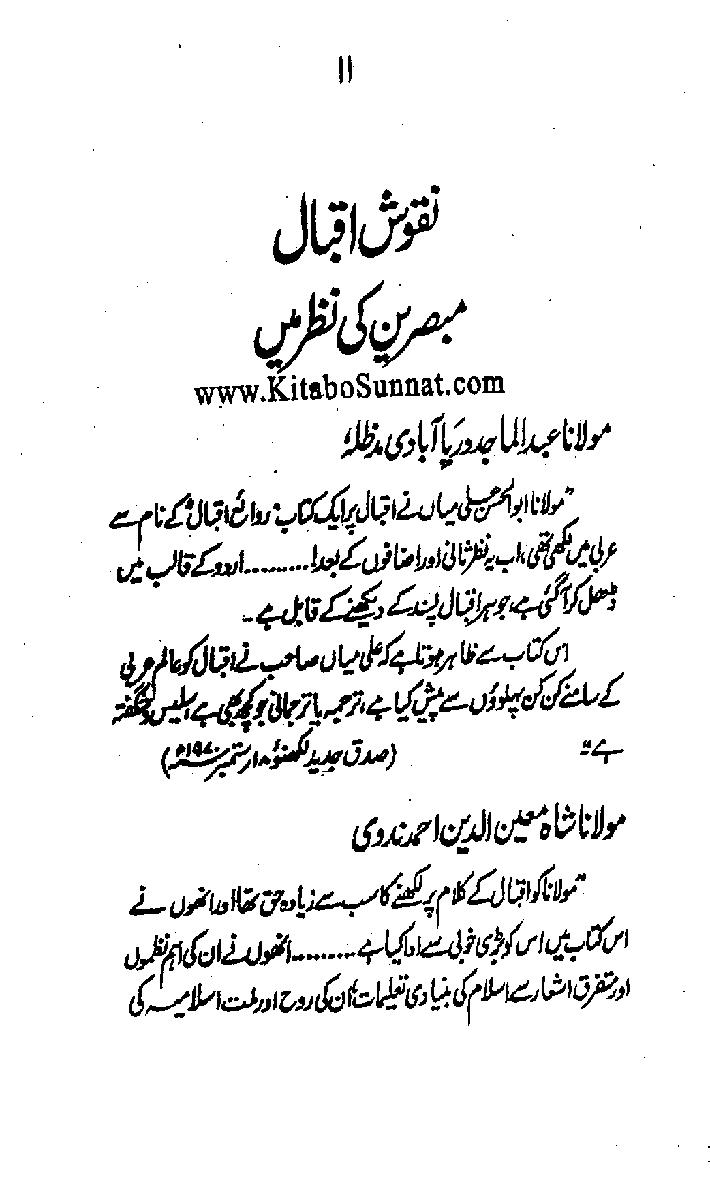 ۱۱
نقوش اقبال
مبصرین کی نظر میں
www.KitaboSunnat.com
مولانا عبدالماجد دریا آبادی مدظلہٗ
"مولانا ابوالحسن علی میاں نے اقبال پر ایک کتاب "روائع اقبال" کے نام سے
عربی میں لکھی تھی، اب یہ نظر ثانی اور اضافوں کے بعد!.......... اردو کے قالب میں
ڈھل کر آگئی ہے، جو ہر اقبال پسند کے دیکھنے کے قابل ہے۔
اس کتاب سے ظاہر ہوتا ہے کہ علی میاں صاحب نے اقبال کو عالم عربی
کے سامنے کن کن پہلوؤں سے پیش کیا ہے، ترجمہ یا ترجمانی جو کچھ بھی ہے سلیس و شگفتہ
ہے"
(صدق جدید لکھنؤ ستمبر ۱۹۷۰ء)
مولانا شاہ معین الدین احمد ندوی
"مولانا کو اقبال کے کلام پر لکھنے کا سب سے زیادہ حق تھا اور انھوں نے
اس کتاب میں اس کو بڑی خوبی سے ادا کیا ہے.......... انھوں نے ان کی اہم نظموں
اور متفرق اشعار سے اسلام کی بنیادی تعلیمات، ان کی روح اور ملت اسلامیہ کی